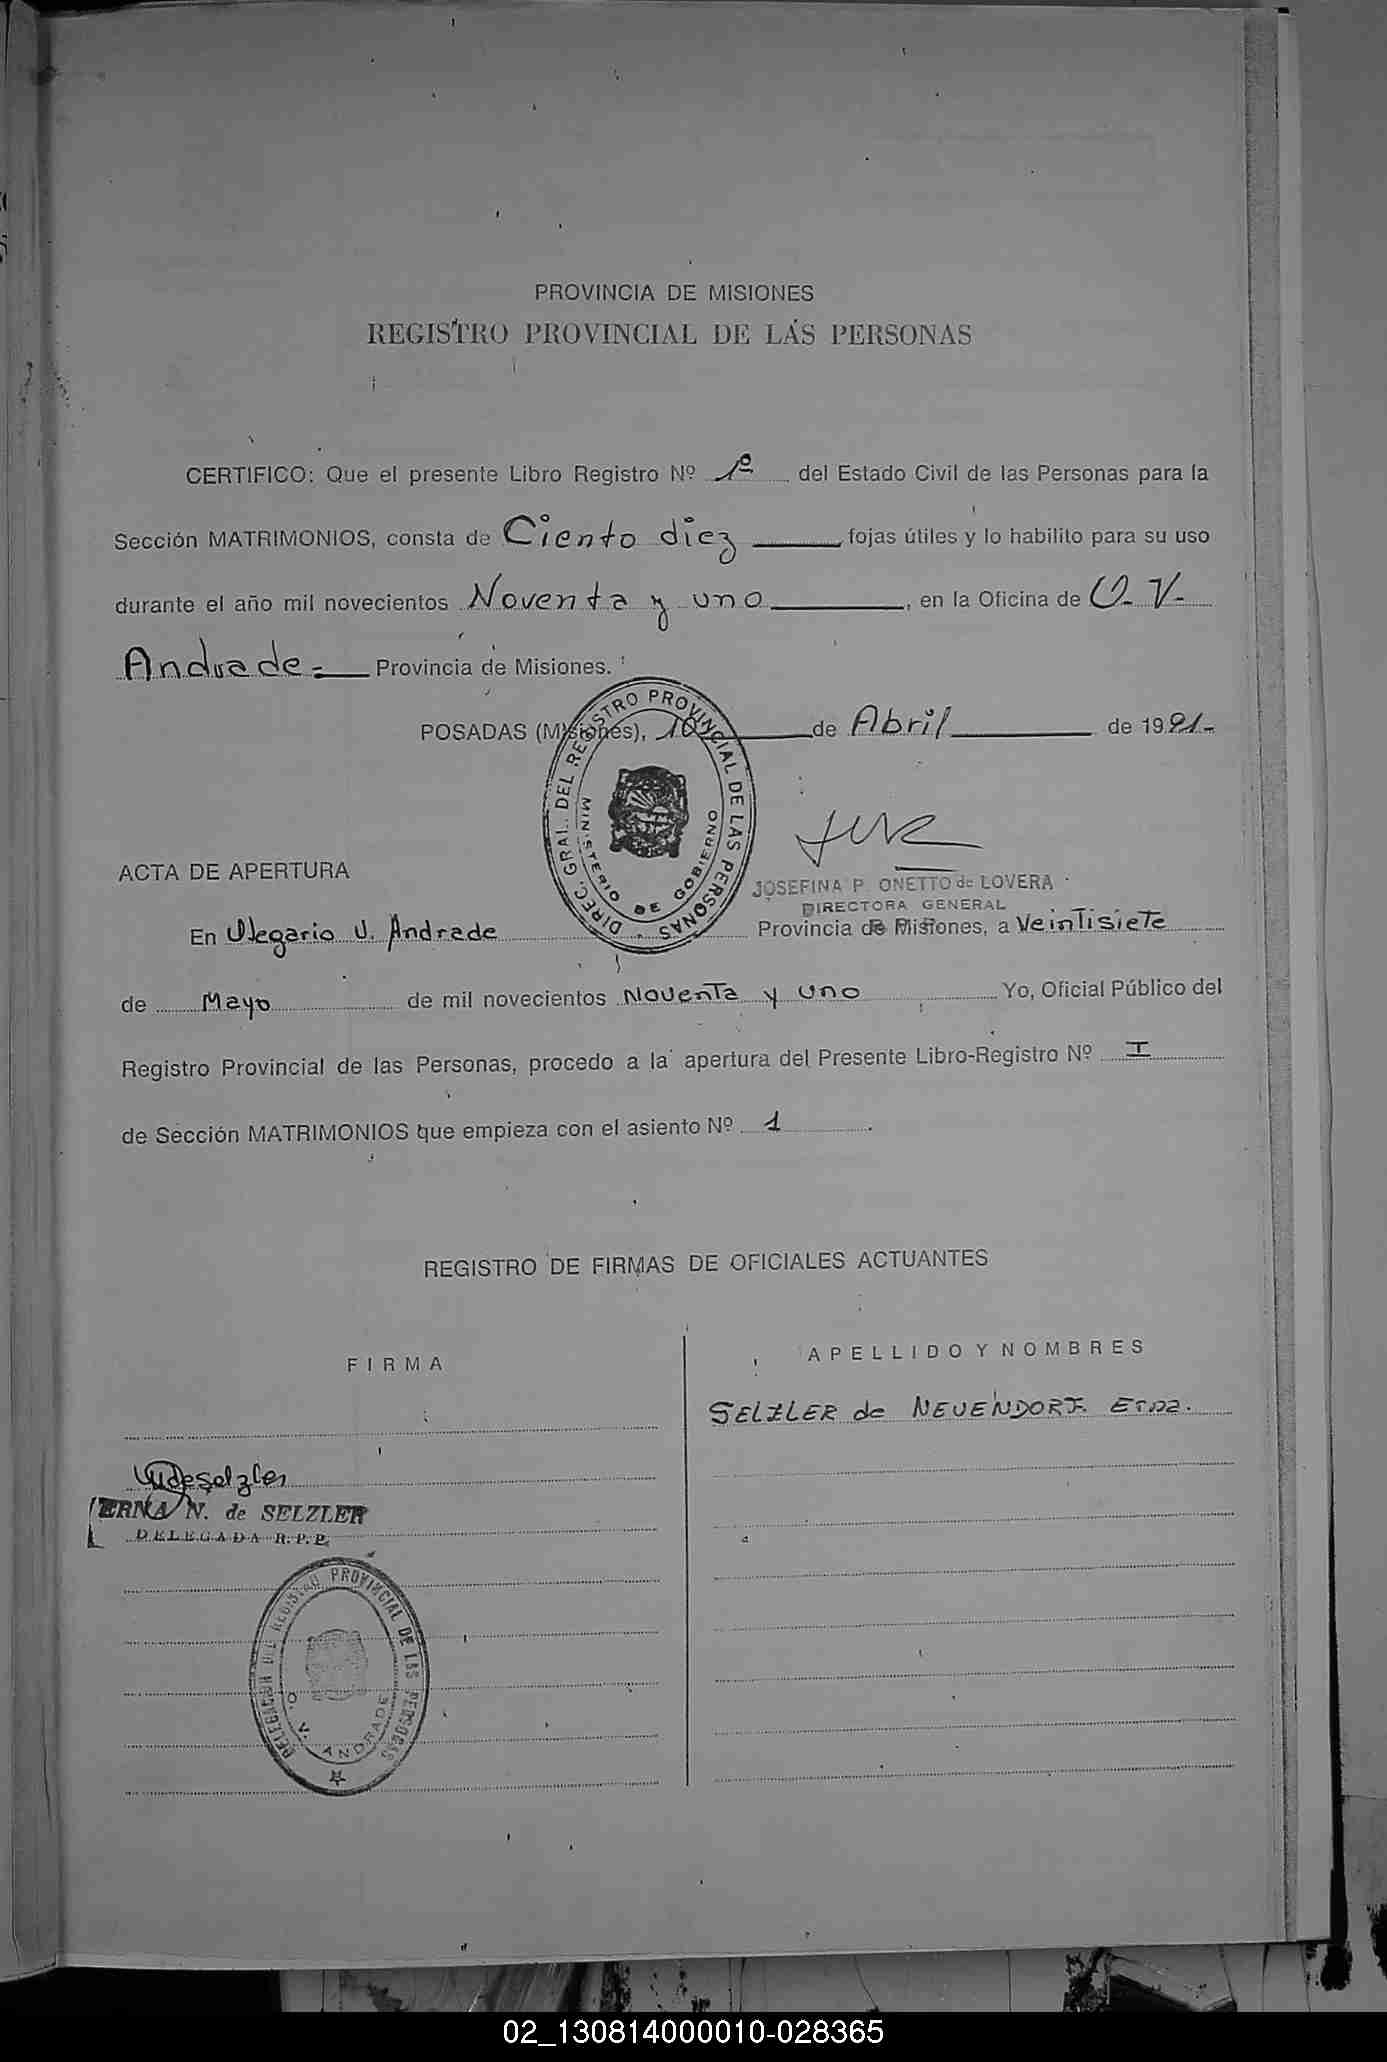 PROVINCIA DE MISIONES
REGISTRO PROVINCIAL DE LAS PERSONAS
CERTIFICO: Que el presente Libro Registro Nº 1º del Estado Civil de las Personas para la
Sección MATRIMONIOS, consta de Ciento diez fojas útiles y lo habilito para su uso
durante el año mil novecientos Noventa y uno, en la Oficina de O. V.
Andrade.- Provincia de Misiones.
POSADAS (Misiones), 10 de Abril de 1991-
DIREC. GRAL. DEL REGISTRO PROVINCIAL DE LAS PERSONAS
MINISTERIO DE GOBIERNO
JOSEFINA P. ONETTO de LOVERA
DIRECTORA GENERAL
ACTA DE APERTURA
En Olegario V. Andrade Provincia de Misiones, a Veintisiete
de Mayo de mil novecientos Noventa y uno Yo, Oficial Público del
Registro Provincial de las Personas, procedo a la apertura del Presente Libro-Registro Nº I
de Sección MATRIMONIOS que empieza con el asiento Nº 1.
REGISTRO DE FIRMAS DE OFICIALES ACTUANTES
FIRMA
APELLIDO Y NOMBRES
SELZLER de NEUENDORF. Erna.
ERNA N. de SELZLER
DELEGADA R.P.P.
DELEGACION DEL REGISTRO PROVINCIAL DE LAS PERSONAS
O. V. ANDRADE
02_130814000010-028365